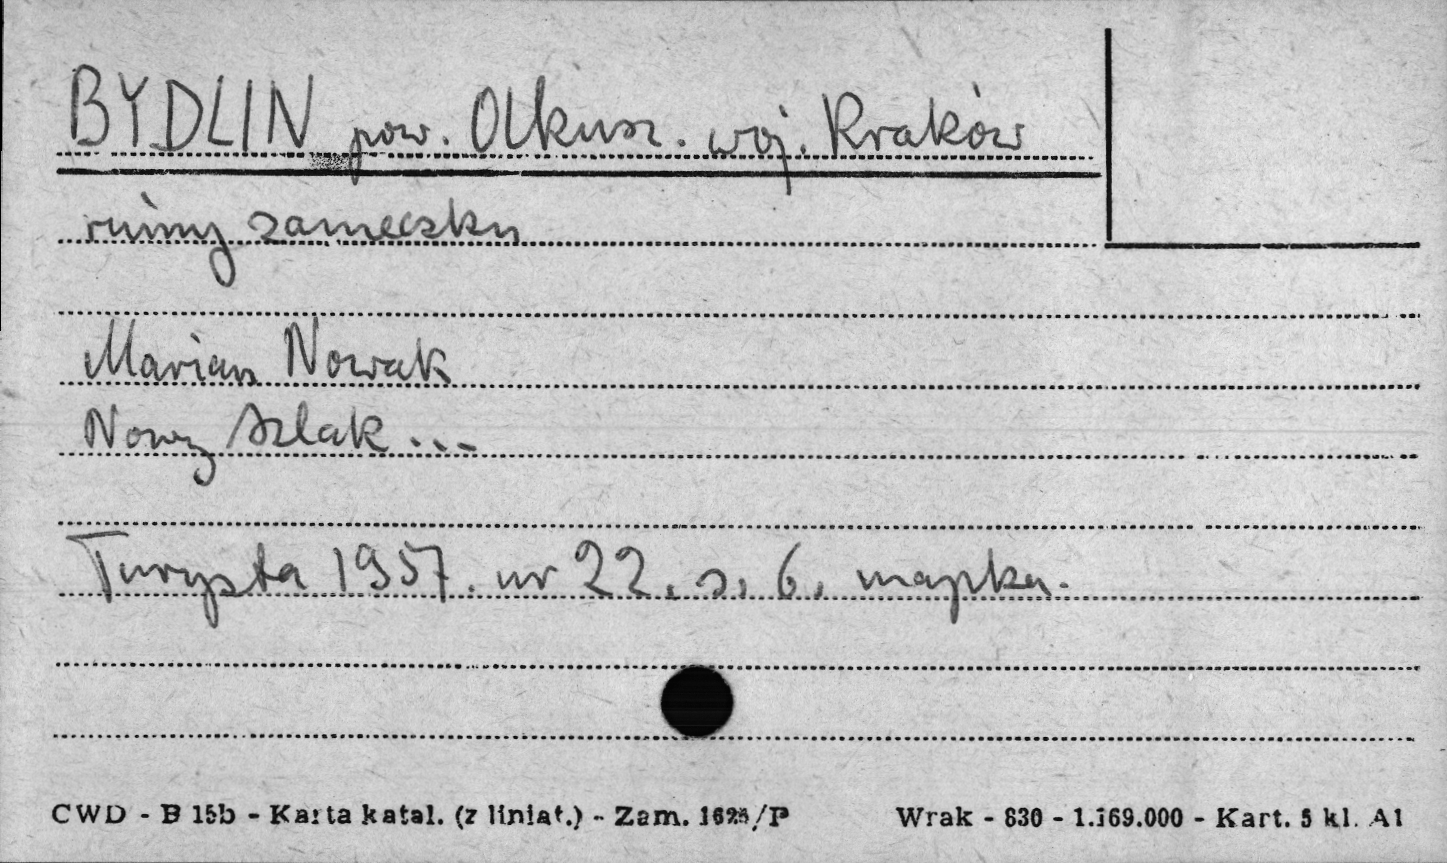 BYDLIN pow. Olkusz. woj. Kraków
ruiny zameczku
Marian Nowak
Nowy szlak ...
Turysta 1957. nr 22. s. 6. mapka.
CWD - B 15b - Karta katal. (z liniat.) - Zam. /P Wrak - 630 - 1.169.000 - Kart. 5 kl. A1